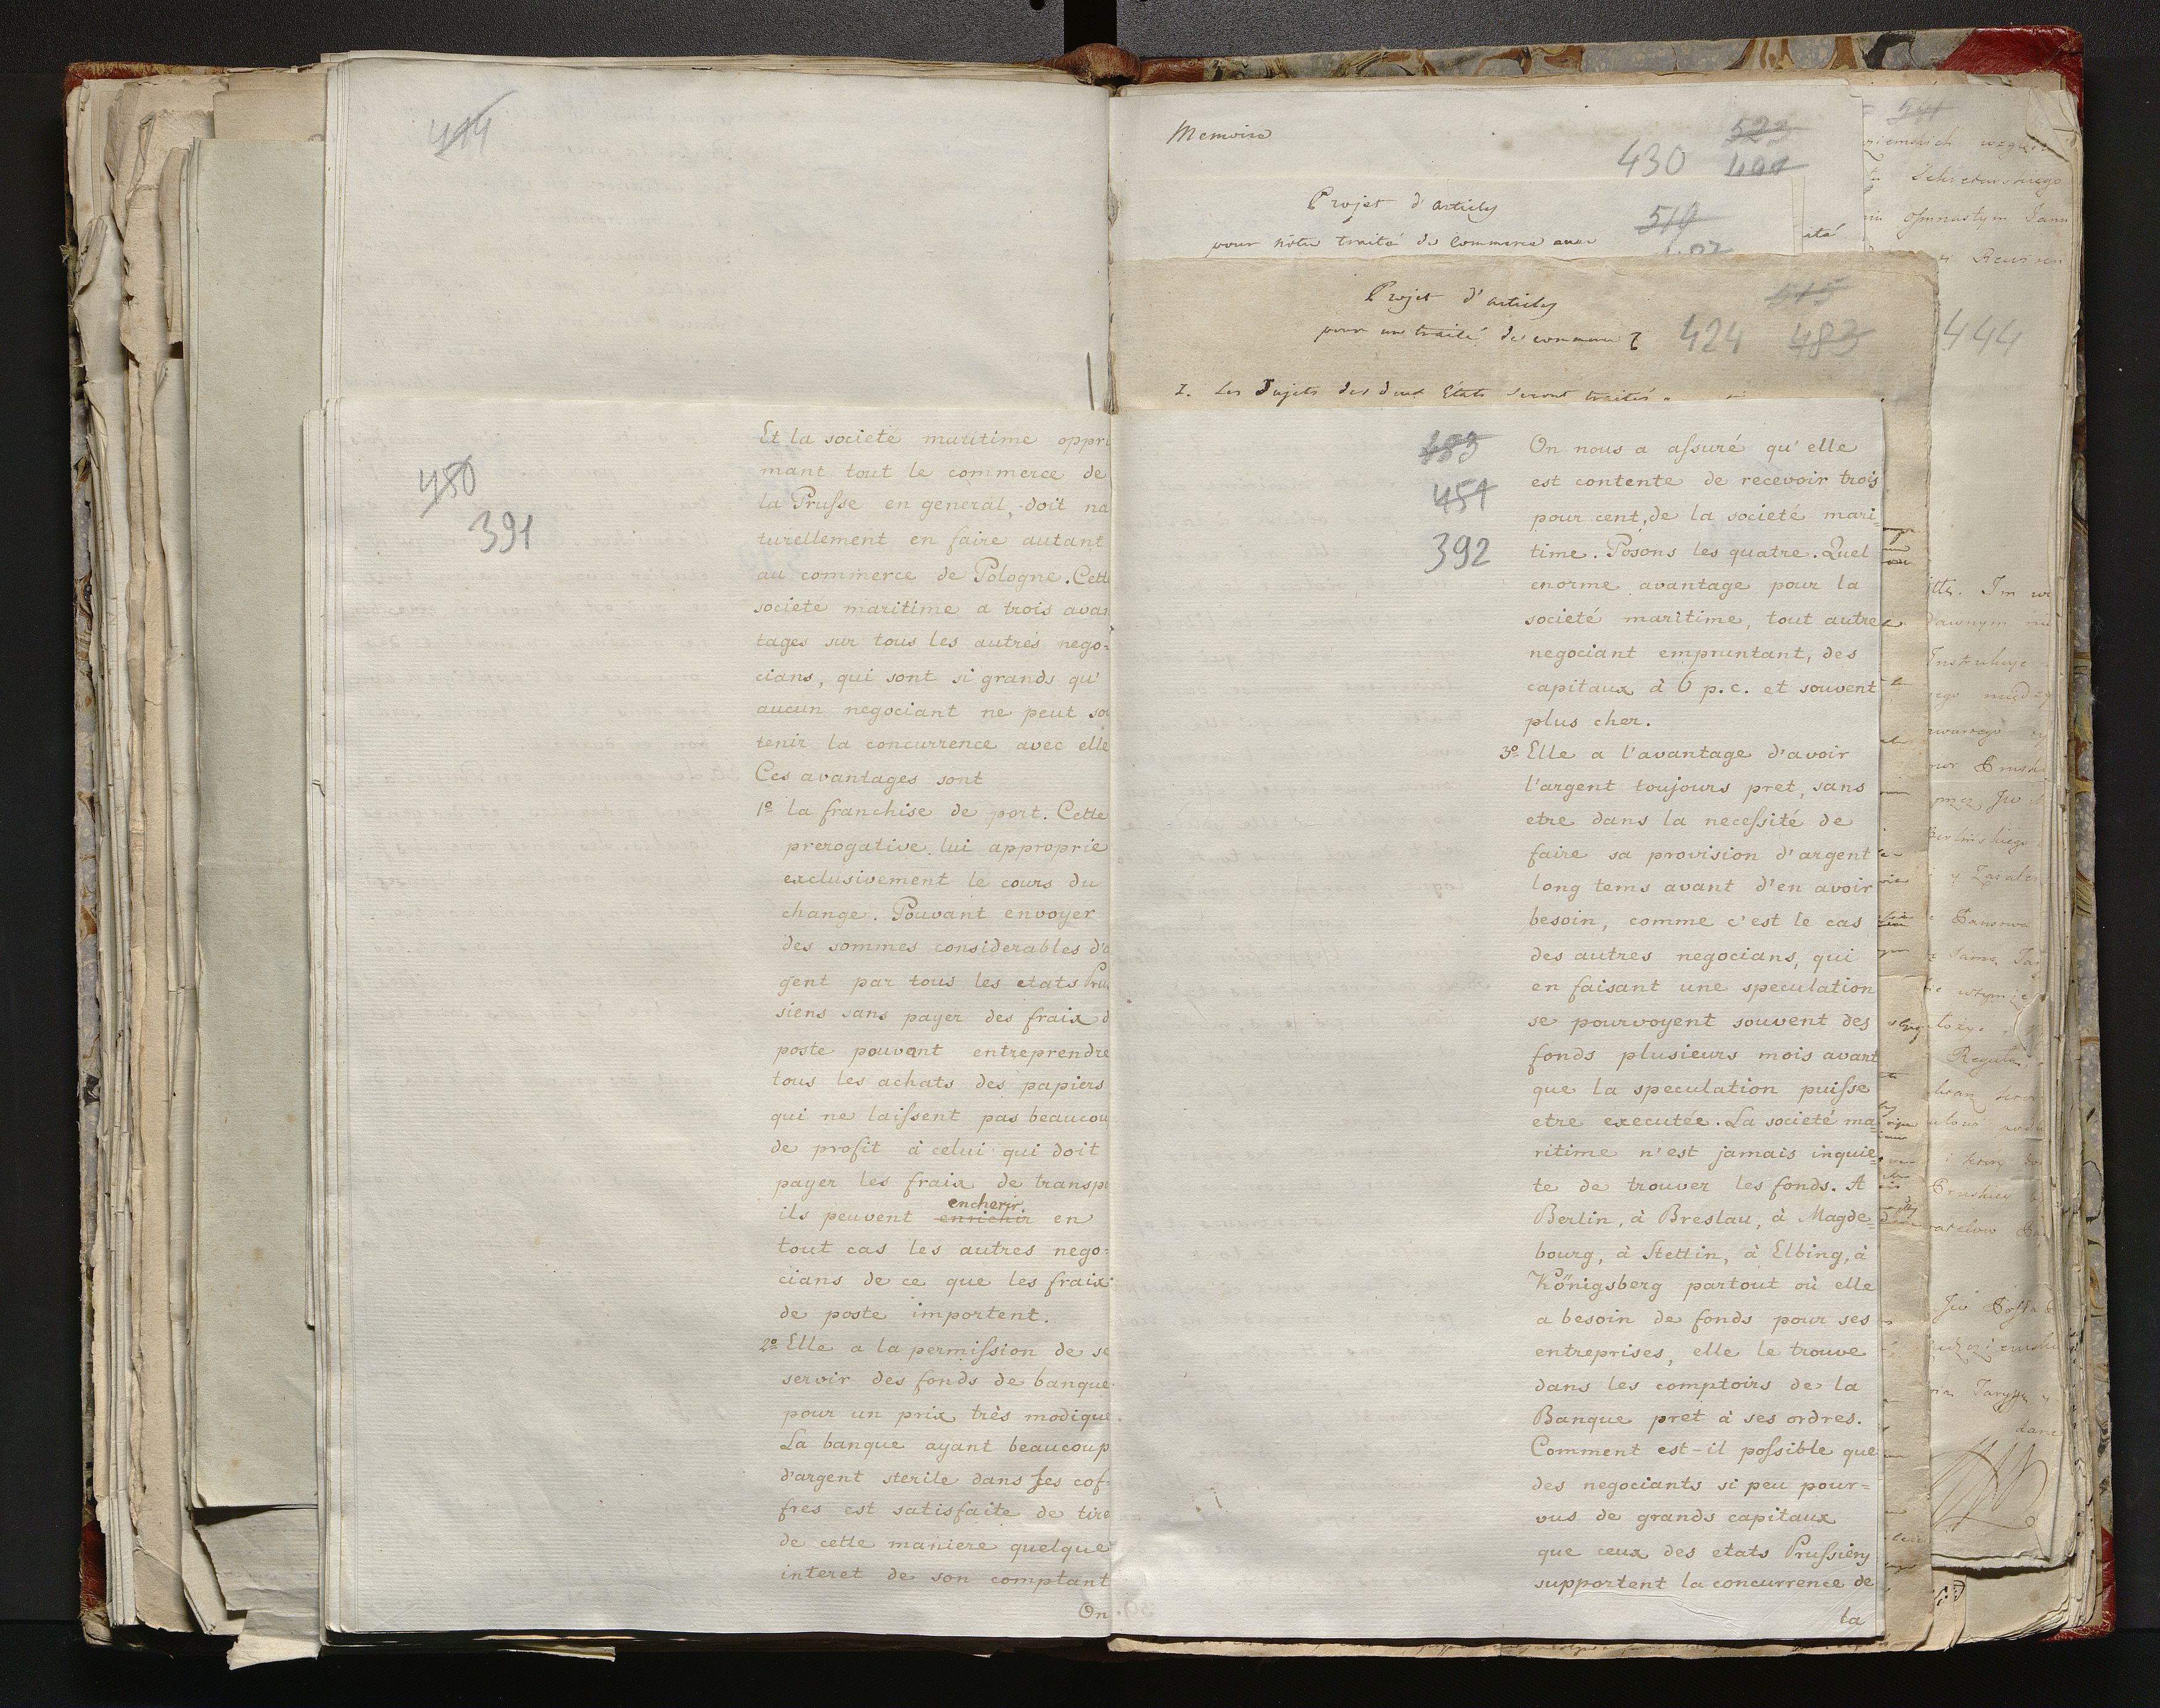 414
450
391
Et la societé maritime oppri
mant tout le commerce de
la Prusse en general, doit na
turellement en faire autant
au commerce de Pologne. Cette
societé maritime a trois avan
tages sur tous les autres nego=
cians, qui sont si grands qu'
aucun negociant ne peut sou
tenir la concurrence avec elle
Ces avantages sont
1º la franchise de port. Cette
prerogative lui approprie
exclusivement le cours du
change. Pouvant envoyer
des sommes considerables d'a
gent par tous les etats Prus
siens sans payer des fraix d
poste pouvant entreprendre
tous les achats des papiers
qui ne laissent pas beaucou
de profit à celui qui doit
payer les fraix de transpo
encherir
ils peuvent enrichir en
tout cas les autres nego=
cians de ce que les fraix
de poste importent.
2º Elle a la permission de se
servir des fonds de banque
pour un prix très modique.
La banque ayant beaucoup
d'argent sterile dans ses cof=
fres est satisfaite de tire
de cette maniere quelque
interet de son comptant
On
Memoire
523
430 491
Projet d'articles
pour nôtre traité de commerce avec
519
487
Projet d'articles
pour un traité de commerce
515
424 483
1. Les Sujets des deux Etats seront traités
541
444
483
451
392
On nous a assuré qu'elle
est contente de recevoir trois
pour cent, de la societé mari
time. Posons les quatre. Quel
enorme avantage pour la
societé maritime, tout autre
negociant empruntant, des
capitaux à 6 p.c. et souvent
plus cher.
3º Elle a l'avantage d'avoir
l'argent toujours pret, sans
etre dans la necessité de
faire sa provision d'argent
long tems avant d'en avoir
besoin, comme c'est le cas
des autres negocians, qui
en faisant une speculation
se pourvoyent souvent des
fonds plusieurs mois avant
que la speculation puisse
etre executée. La societé ma=
ritime n'est jamais inquie=
te de trouver les fonds. A
Berlin, à Breslau, à Magde=
bourg, à Stettin, à Elbing, à
Königsberg partout où elle
a besoin de fonds pour ses
entreprises, elle le trouve
dans les comptoirs de la
Banque pret à ses ordres.
Comment est-il possible que
des negociants si peu pour=
vus de grands capitaux
que ceux des etats Prussiens
supportent la concurrence de
la